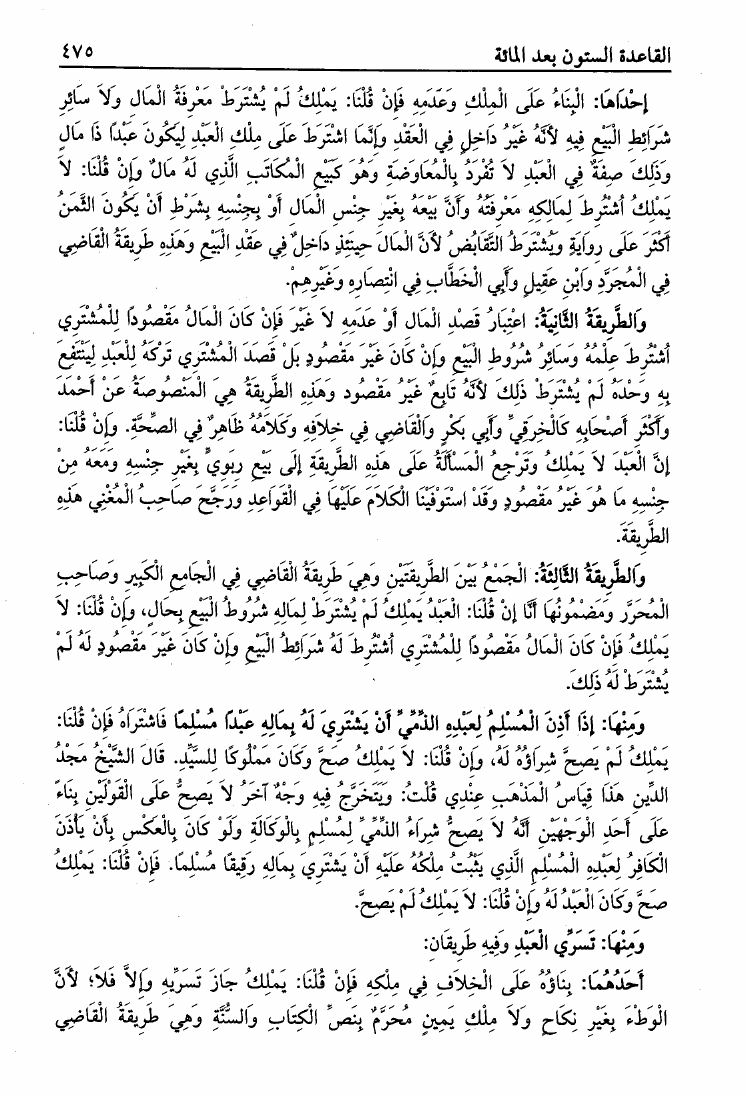 القاعدة الستون بعد المائة ٤٧٥
إِحْدَاهَا: الْبِنَاءُ عَلَى الْمِلْكِ وَعَدَمِهِ فَإِنْ قُلْنَا: يَمْلِكُ لَمْ يُشْتَرَطْ مَعْرِفَةُ الْمَالِ وَلاَ سَائِرِ
شَرَائِطِ الْبَيْعِ فِيهِ لأَنَّهُ غَيْرُ دَاخِلٍ فِي الْعَقْدِ وَإِنَّمَا اشْتَرَطَ عَلَى مِلْكِ الْعَبْدِ لِيَكُونَ عَبْدًا ذَا مَالٍ
وَذَلِكَ صِفَةٌ فِي الْعَبْدِ لاَ تُفْرَدُ بِالْمُعَاوَضَةِ وَهُوَ كَبَيْعِ الْمُكَاتَبِ الَّذِي لَهُ مَالٌ وَإِنْ قُلْنَا: لاَ
يَمْلِكُ اُشْتُرِطَ لِمَالِكِهِ مَعْرِفَتُهُ وَأَنَّ بَيْعَهُ بِغَيْرِ جِنْسِ الْمَالِ أَوْ بِجِنْسِهِ بِشَرْطِ أَنْ يَكُونَ الثَّمَنُ
أَكْثَرَ عَلَى رِوَايَةٍ وَيُشْتَرَطُ التَّقَابُضُ لأَنَّ الْمَالَ حِينَئِذٍ دَاخِلٌ فِي عَقْدِ الْبَيْعِ وَهَذِهِ طَرِيقَةُ الْقَاضِي
فِي الْمُجَرَّدِ وَابْنِ عَقِيلٍ وَأَبِي الْخَطَّابِ فِي انْتِصَارِهِ وَغَيْرِهِمْ.
وَالطَّرِيقَةُ الثَّانِيَةُ: اعْتِبَارُ قَصْدِ الْمَالِ أَوْ عَدَمِهِ لاَ غَيْرَ فَإِنْ كَانَ الْمَالُ مَقْصُودًا لِلْمُشْتَرِي
اُشْتُرِطَ عِلْمُهُ وَسَائِرُ شُرُوطِ الْبَيْعِ وَإِنْ كَانَ غَيْرَ مَقْصُودٍ بَلْ قَصَدَ الْمُشْتَرِي تَرْكَهُ لِلْعَبْدِ لِيَنْتَفِعَ
بِهِ وَحْدَهُ لَمْ يُشْتَرَطْ ذَلِكَ لأَنَّهُ تَابِعٌ غَيْرُ مَقْصُود وَهَذِهِ الطَّرِيقَةُ هِيَ الْمَنْصُوصَةُ عَنْ أَحْمَدَ
وَأَكْثَرِ أَصْحَابِهِ كَالْخِرَقِيِّ وَأَبِي بَكْرٍ وَالْقَاضِي فِي خِلاَفِهِ وَكَلاَمُهُ ظَاهِرٌ فِي الصِّحَّةِ. وَإِنْ قُلْنَا:
إِنَّ الْعَبْدَ لاَ يَمْلِكُ وَتَرْجِعُ الْمَسْأَلَةُ عَلَى هَذِهِ الطَّرِيقَةِ إِلَى بَيْعِ رِبَوِيٍّ بِغَيْرِ جِنْسِهِ وَمَعَهُ مِنْ
جِنْسِهِ مَا هُوَ غَيْرُ مَقْصُودٍ وَقَدْ اسْتَوْفَيْنَا الْكَلاَمَ عَلَيْهَا فِي الْقَوَاعِدِ وَرَجَّحَ صَاحِبُ الْمُغْنِي هَذِهِ
الطَّرِيقَةَ.
وَالطَّرِيقَةُ الثَّالِثَةُ: الْجَمْعُ بَيْنَ الطَّرِيقَتَيْنِ وَهِيَ طَرِيقَةُ الْقَاضِي فِي الْجَامِعِ الْكَبِيرِ وَصَاحِبِ
الْمُحَرَّرِ وَمَضْمُونُهَا أَنَّا إِنْ قُلْنَا: الْعَبْدُ يَمْلِكُ لَمْ يُشْتَرَطْ لِمَالِهِ شُرُوطُ الْبَيْعِ بِحَالٍ، وَإِنْ قُلْنَا: لاَ
يَمْلِكُ فَإِنْ كَانَ الْمَالُ مَقْصُودًا لِلْمُشْتَرِي اُشْتُرِطَ لَهُ شَرَائِطُ الْبَيْعِ وَإِنْ كَانَ غَيْرَ مَقْصُودٍ لَهُ لَمْ
يُشْتَرَطْ لَهُ ذَلِكَ.
وَمِنْهَا: إِذَا أَذِنَ الْمُسْلِمُ لِعَبْدِهِ الذِّمِّيِّ أَنْ يَشْتَرِيَ لَهُ بِمَالِهِ عَبْدًا مُسْلِمًا فَاشْتَرَاهُ فَإِنْ قُلْنَا:
يَمْلِكُ لَمْ يَصِحَّ شِرَاؤُهُ لَهُ، وَإِنْ قُلْنَا: لاَ يَمْلِكُ صَحَّ وَكَانَ مَمْلُوكًا لِلسَّيِّدِ. قَالَ الشَّيْخُ مَجْدُ
الدِّينِ هَذَا قِيَاسُ الْمَذْهَبِ عِنْدِي قُلْتُ: وَيَتَخَرَّجُ فِيهِ وَجْهٌ آخَرُ لاَ يَصِحُّ عَلَى الْقَوْلَيْنِ بِنَاءً
عَلَى أَحَدِ الْوَجْهَيْنِ أَنَّهُ لاَ يَصِحُّ شِرَاءُ الذِّمِّيِّ لِمُسْلِمٍ بِالْوَكَالَةِ وَلَوْ كَانَ بِالْعَكْسِ بِأَنْ يَأْذَنَ
الْكَافِرُ لِعَبْدِهِ الْمُسْلِمِ الَّذِي يَثْبُتُ مِلْكُهُ عَلَيْهِ أَنْ يَشْتَرِيَ بِمَالِهِ رَقِيقًا مُسْلِمًا. فَإِنْ قُلْنَا: يَمْلِكُ
صَحَّ وَكَانَ الْعَبْدُ لَهُ وَإِنْ قُلْنَا: لاَ يَمْلِكُ لَمْ يَصِحَّ.
وَمِنْهَا: تَسَرِّي الْعَبْدِ وَفِيهِ طَرِيقَان:
أَحَدُهُمَا: بِنَاؤُهُ عَلَى الْخِلاَفِ فِي مِلْكِهِ فَإِنْ قُلْنَا: يَمْلِكُ جَازَ تَسَرِّيهِ وَإِلاَّ فَلاَ؛ لأَنَّ
الْوَطْءَ بِغَيْرِ نِكَاحٍ وَلاَ مِلْكِ يَمِينٍ مُحَرَّمٌ بِنَصِّ الْكِتَابِ وَالسُّنَّةِ وَهِيَ طَرِيقَةُ الْقَاضِي